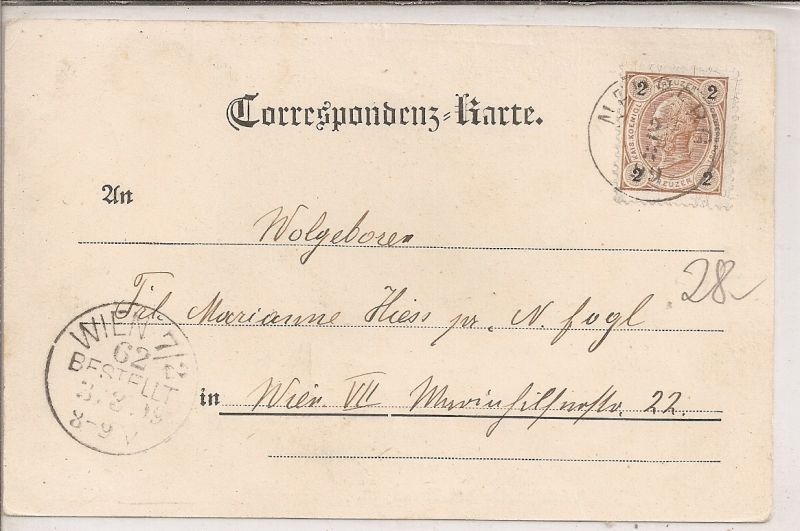 Correspondenz-Karte.
2 KREUZER 2
KAIS. KOENIGL.
2 KREUZER 2
An
Wolgeboren
Frl. Marianne Hiess pr. N. Fogl
28
WIEN 7/2
62
BESTELLT
8-9 V
in Wien VII Mariahilferstr. 22.